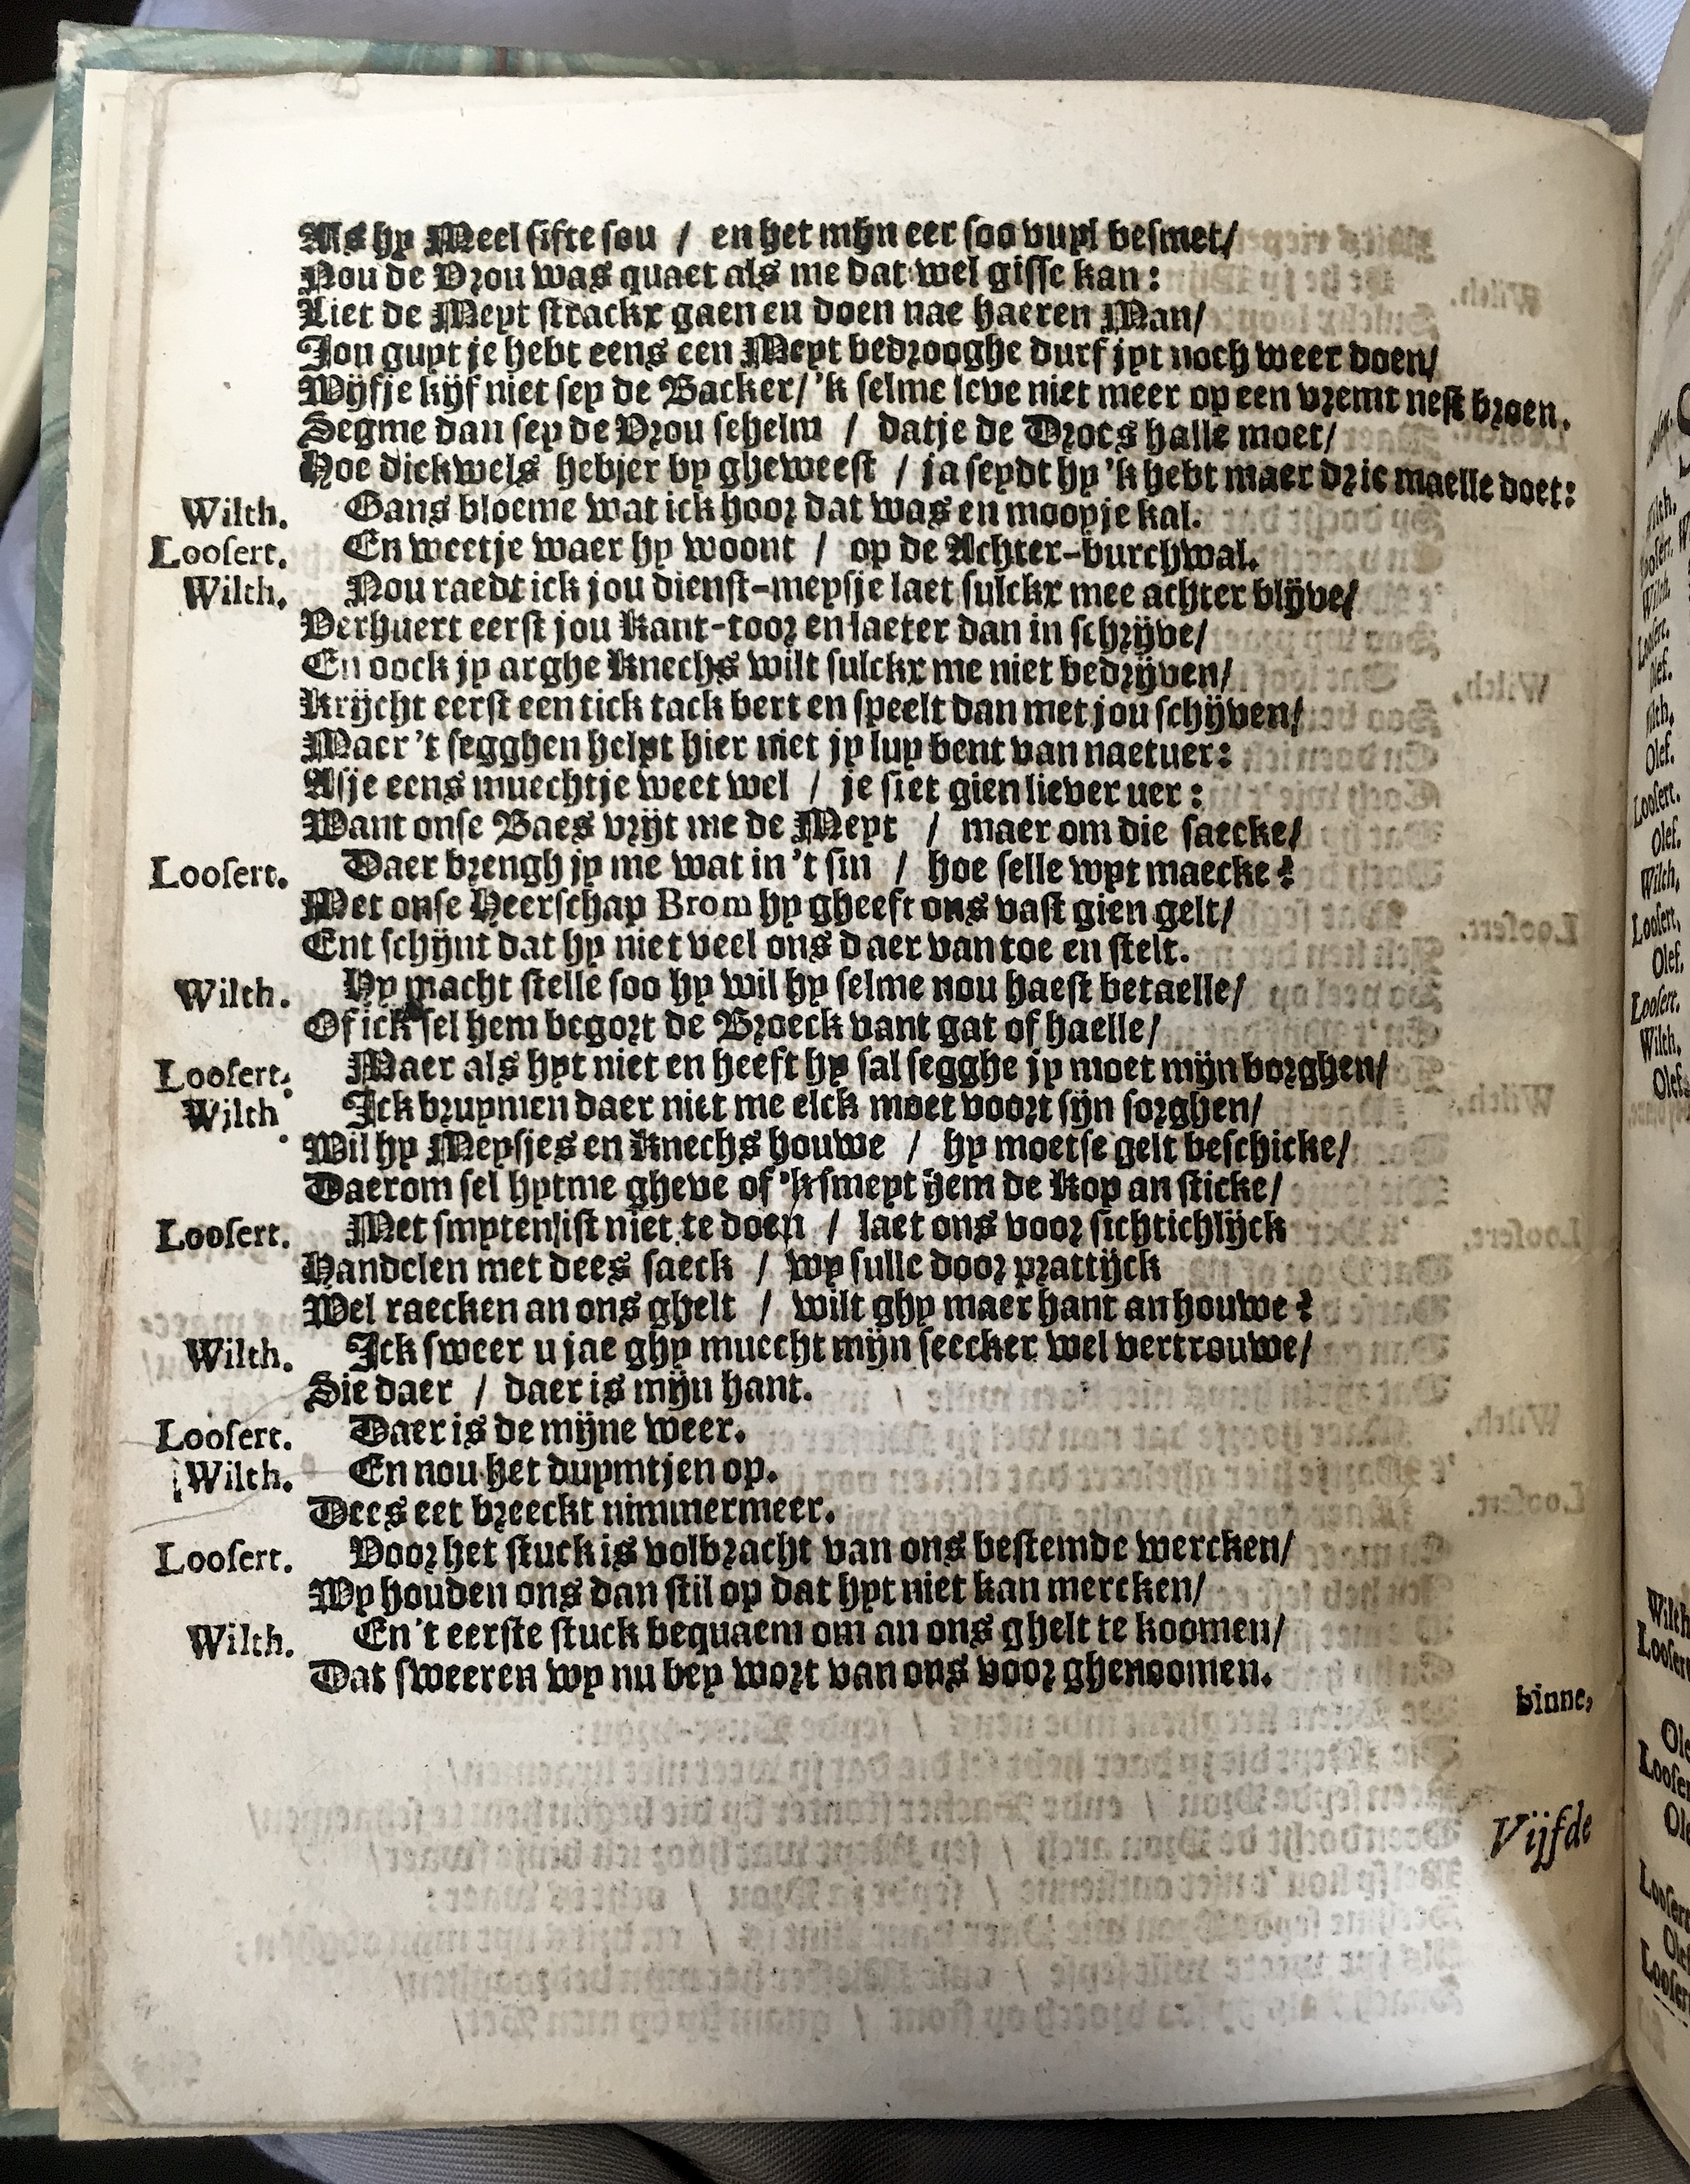 Als hy Meel sifte sou / en het mijn eer soo vuyl besmet/
Nou de Vrou was quaet als me dat wel gisse kan:
Liet de Meyt strackx gaen en doen nae haeren Man/
Jou guyt je hebt eens een Meyt bedrooghe durf jyt noch weer doen/
Wijfje kijf niet sey de Backer/ 'k selme leve niet meer op een vremt nest broen.
Segme dan sey de Vrou schelm / datje de Drocs halle moet/
Hoe dickwels hebjer by gheweest / ja seydt hy 'k hebt maer drie maelle doet:
Wilth. Gans bloeme wat ick hoor dat was en mooyje kal.
Loosert. En weetje waer hy woont / op de Achter-burchwal.
Wilth. Nou raedt ick jou dienst-meysje laet sulckx mee achter blijve/
Verhuert eerst jou Kant-toor en laeter dan in schrijve/
En oock jy arghe Knechs wilt sulckx me niet bedrijven/
Krijcht eerst een tick tack bert en speelt dan met jou schijven/
Maer 't segghen helpt hier niet jy luy bent van naetuer:
Asje eens muechtje weet wel / je siet gien liever uer:
Want onse Baes vrijt me de Meyt / maer om die saecke/
Loosert. Daer brengh jy me wat in 't sin / hoe selle wyt maecke?
Met onse Heerschap Brom hy gheeft ons vast gien gelt/
Ent schijnt dat hy niet veel ons daer van toe en stelt.
Wilth. Hy macht stelle soo hy wil hy selme nou haest betaelle/
Of ick sel hem begort de Broeck vant gat of haelle/
Loosert. Maer als hyt niet en heeft hy sal segghe jy moet mijn borghen/
Wilth. Ick bruymen daer niet me elck moet voort sijn sorghen/
Wil hy Meysjes en Knechs houwe / hy moetse gelt beschicke/
Daerom sel hytme gheve of 'k smeyt hem de Kop an sticke/
Loosert. Met smyten ist niet te doen / laet ons voor sichtichlijck
Handelen met dees saeck / wy sulle door prattijck
Wel raecken an ons ghelt / wilt ghy maer hant an houwe?
Wilth. Ick sweer u jae ghy muecht mijn seecker wel vertrouwe/
Sie daer / daer is mijn hant.
Loosert. Daer is de mijne weer.
Wilth. En nou het duymtjen op.
Dees eet breeckt nimmermeer.
Loosert. Voor het stuck is volbracht van ons bestemde wercken/
Wy houden ons dan stil op dat hyt niet kan mercken/
Wilth. En 't eerste stuck bequaem om an ons ghelt te koomen/
Dat sweeren wy nu bey wort van ons voor ghenoomen.
binne,
Vijfde